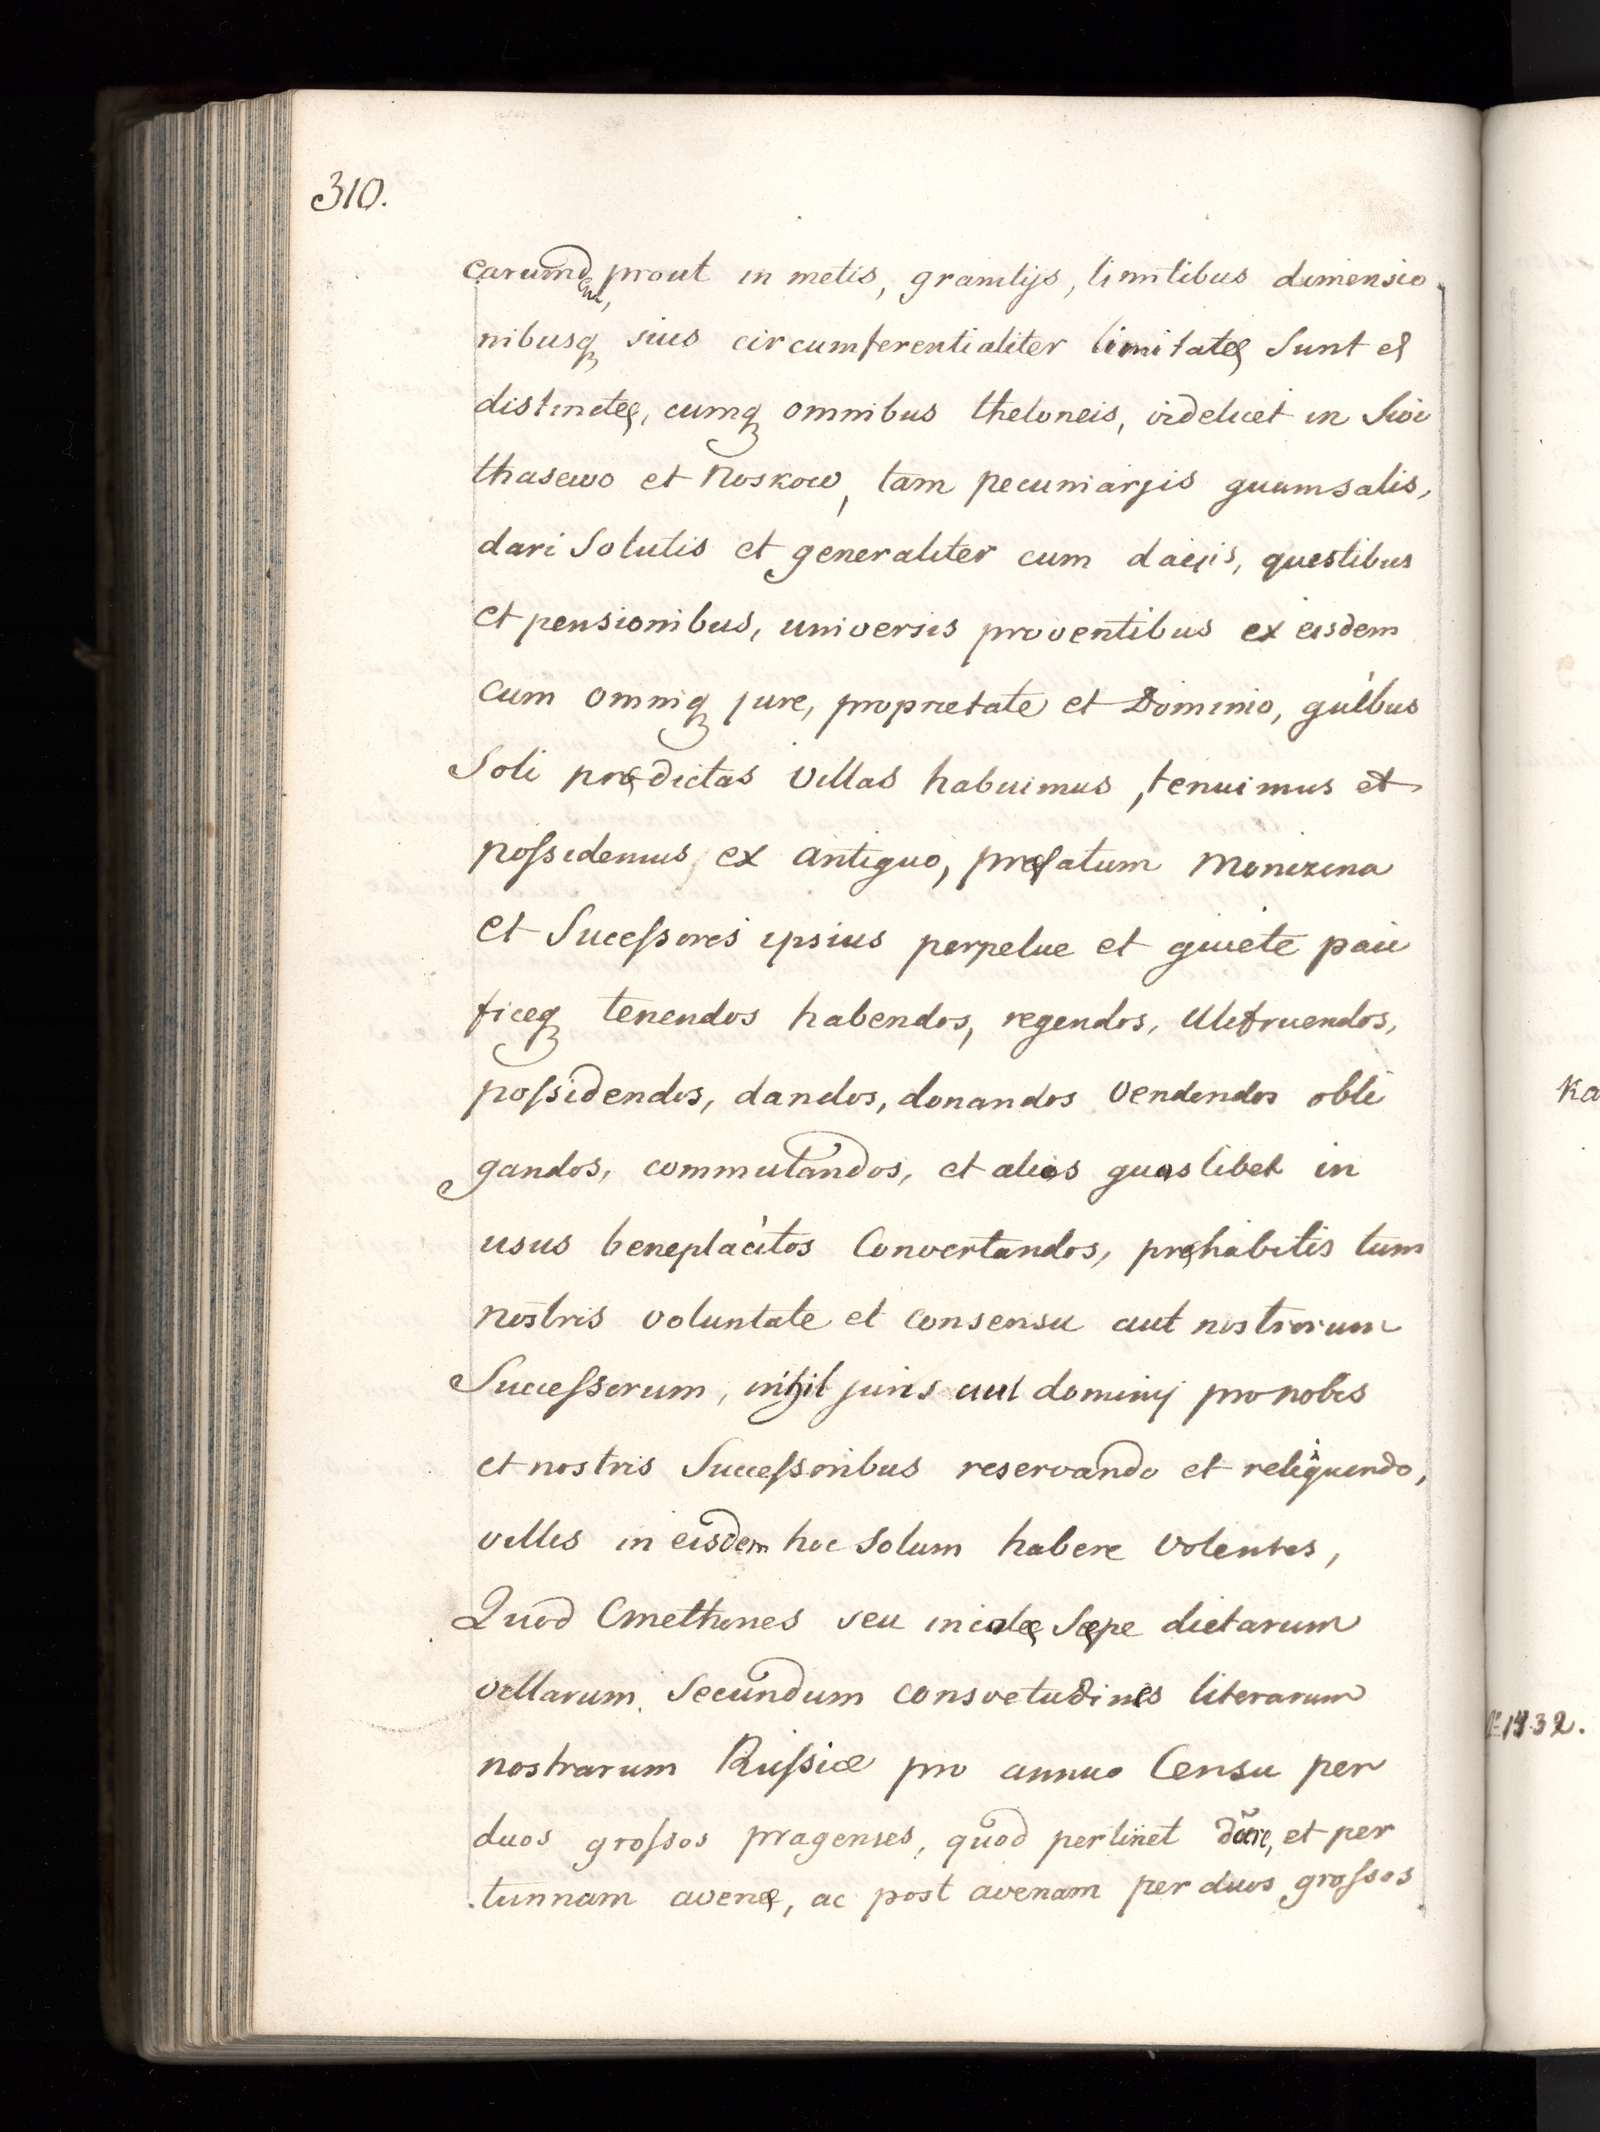 310.
earumdem, prout in metis, granitijs, limitibus dimensio
nibusq suis circumferentialiter limitatę sunt et
distinctę, cumq omnibus theloneis, videlicet in Swi
thasewo et Noskow, tam pecuniarjis quamsalis,
dari solutis et generaliter cum dacijs, questibus
et pensionibus, universis proventibus ex eisdem
cum omniq jure, proprietate et Dominio, quibus
Soli prędictas villas habuimus, tenuimus et
possidemus, ex antiquo, pręfatum
et Sucessores ipsius perpetue et quiete paci
ficeq tenendos habendos, regendos, utifruendos,
possidendos, dandos, donandos vendendos obli
gandos, commutandos, et alios quoslibet in
usus beneplacitos Convertandos, pręhabitis tum
nostris voluntate et consensu aut nostrorum
Successorum, nihil juris aut dominij pro nobis
et nostris Successoribus reservando et reliquendo,
villis in eisdem hoc solum habere volentes,
Quod Cmethones seu incolę sępe dictarum
villarum secundum consvetudines literarum
nostrarum Russiæ pro annuo Censu per
duos grossos pragenses, quod pertinet dare, et per
tunnam avenę, ac post avenam per duos grossos
Ka
1432.